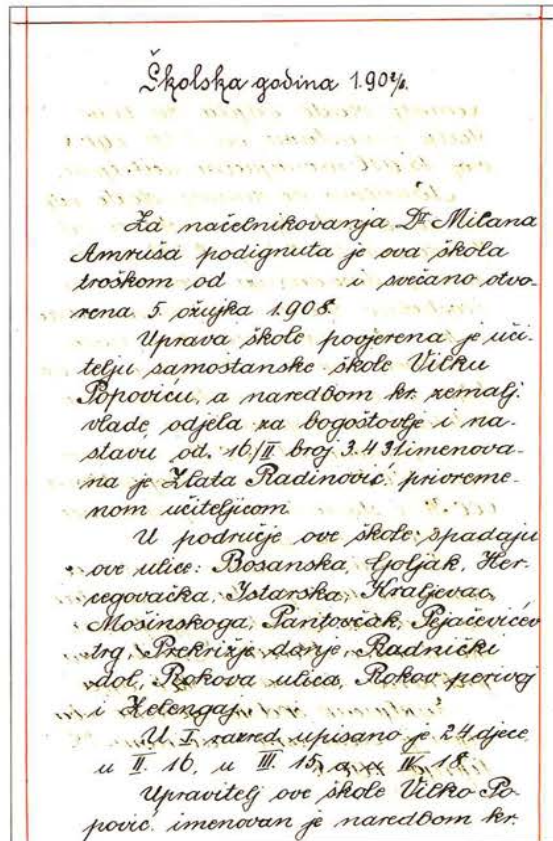 Školska godina 1.907/8.
Za načelnikovanja Dr Milana
Amruša podignuta je ova škola
troškom od i svečano otvo-
rena 5. ožujka 1.908.
Uprava škole povjerena je uči-
telju samostanske škole Vilku
Popoviću, a naredbom kr. zemalj.
vlade, odjela za bogoštovlje i na-
stavu od 16/II broj 3.431 imenova-
na je Zlata Radinović privreme-
nom učiteljicom.
U područje ove škole spadaju
ove ulice: Bosanska, Goljak, Her-
cegovačka, Istarska, Kraljevac,
Mošinskoga, Pantovčak, Pejačevićev
trg, Prekrižje donje, Radnički
dol, Rokova ulica, Rokov perivoj
i Zelengaj.
U I razred upisano je 24 djece,
u II. 16, u III. 15, a u IV. 18.
Upravitelj ove škole Vilko Po-
pović imenovan je naredbom kr.